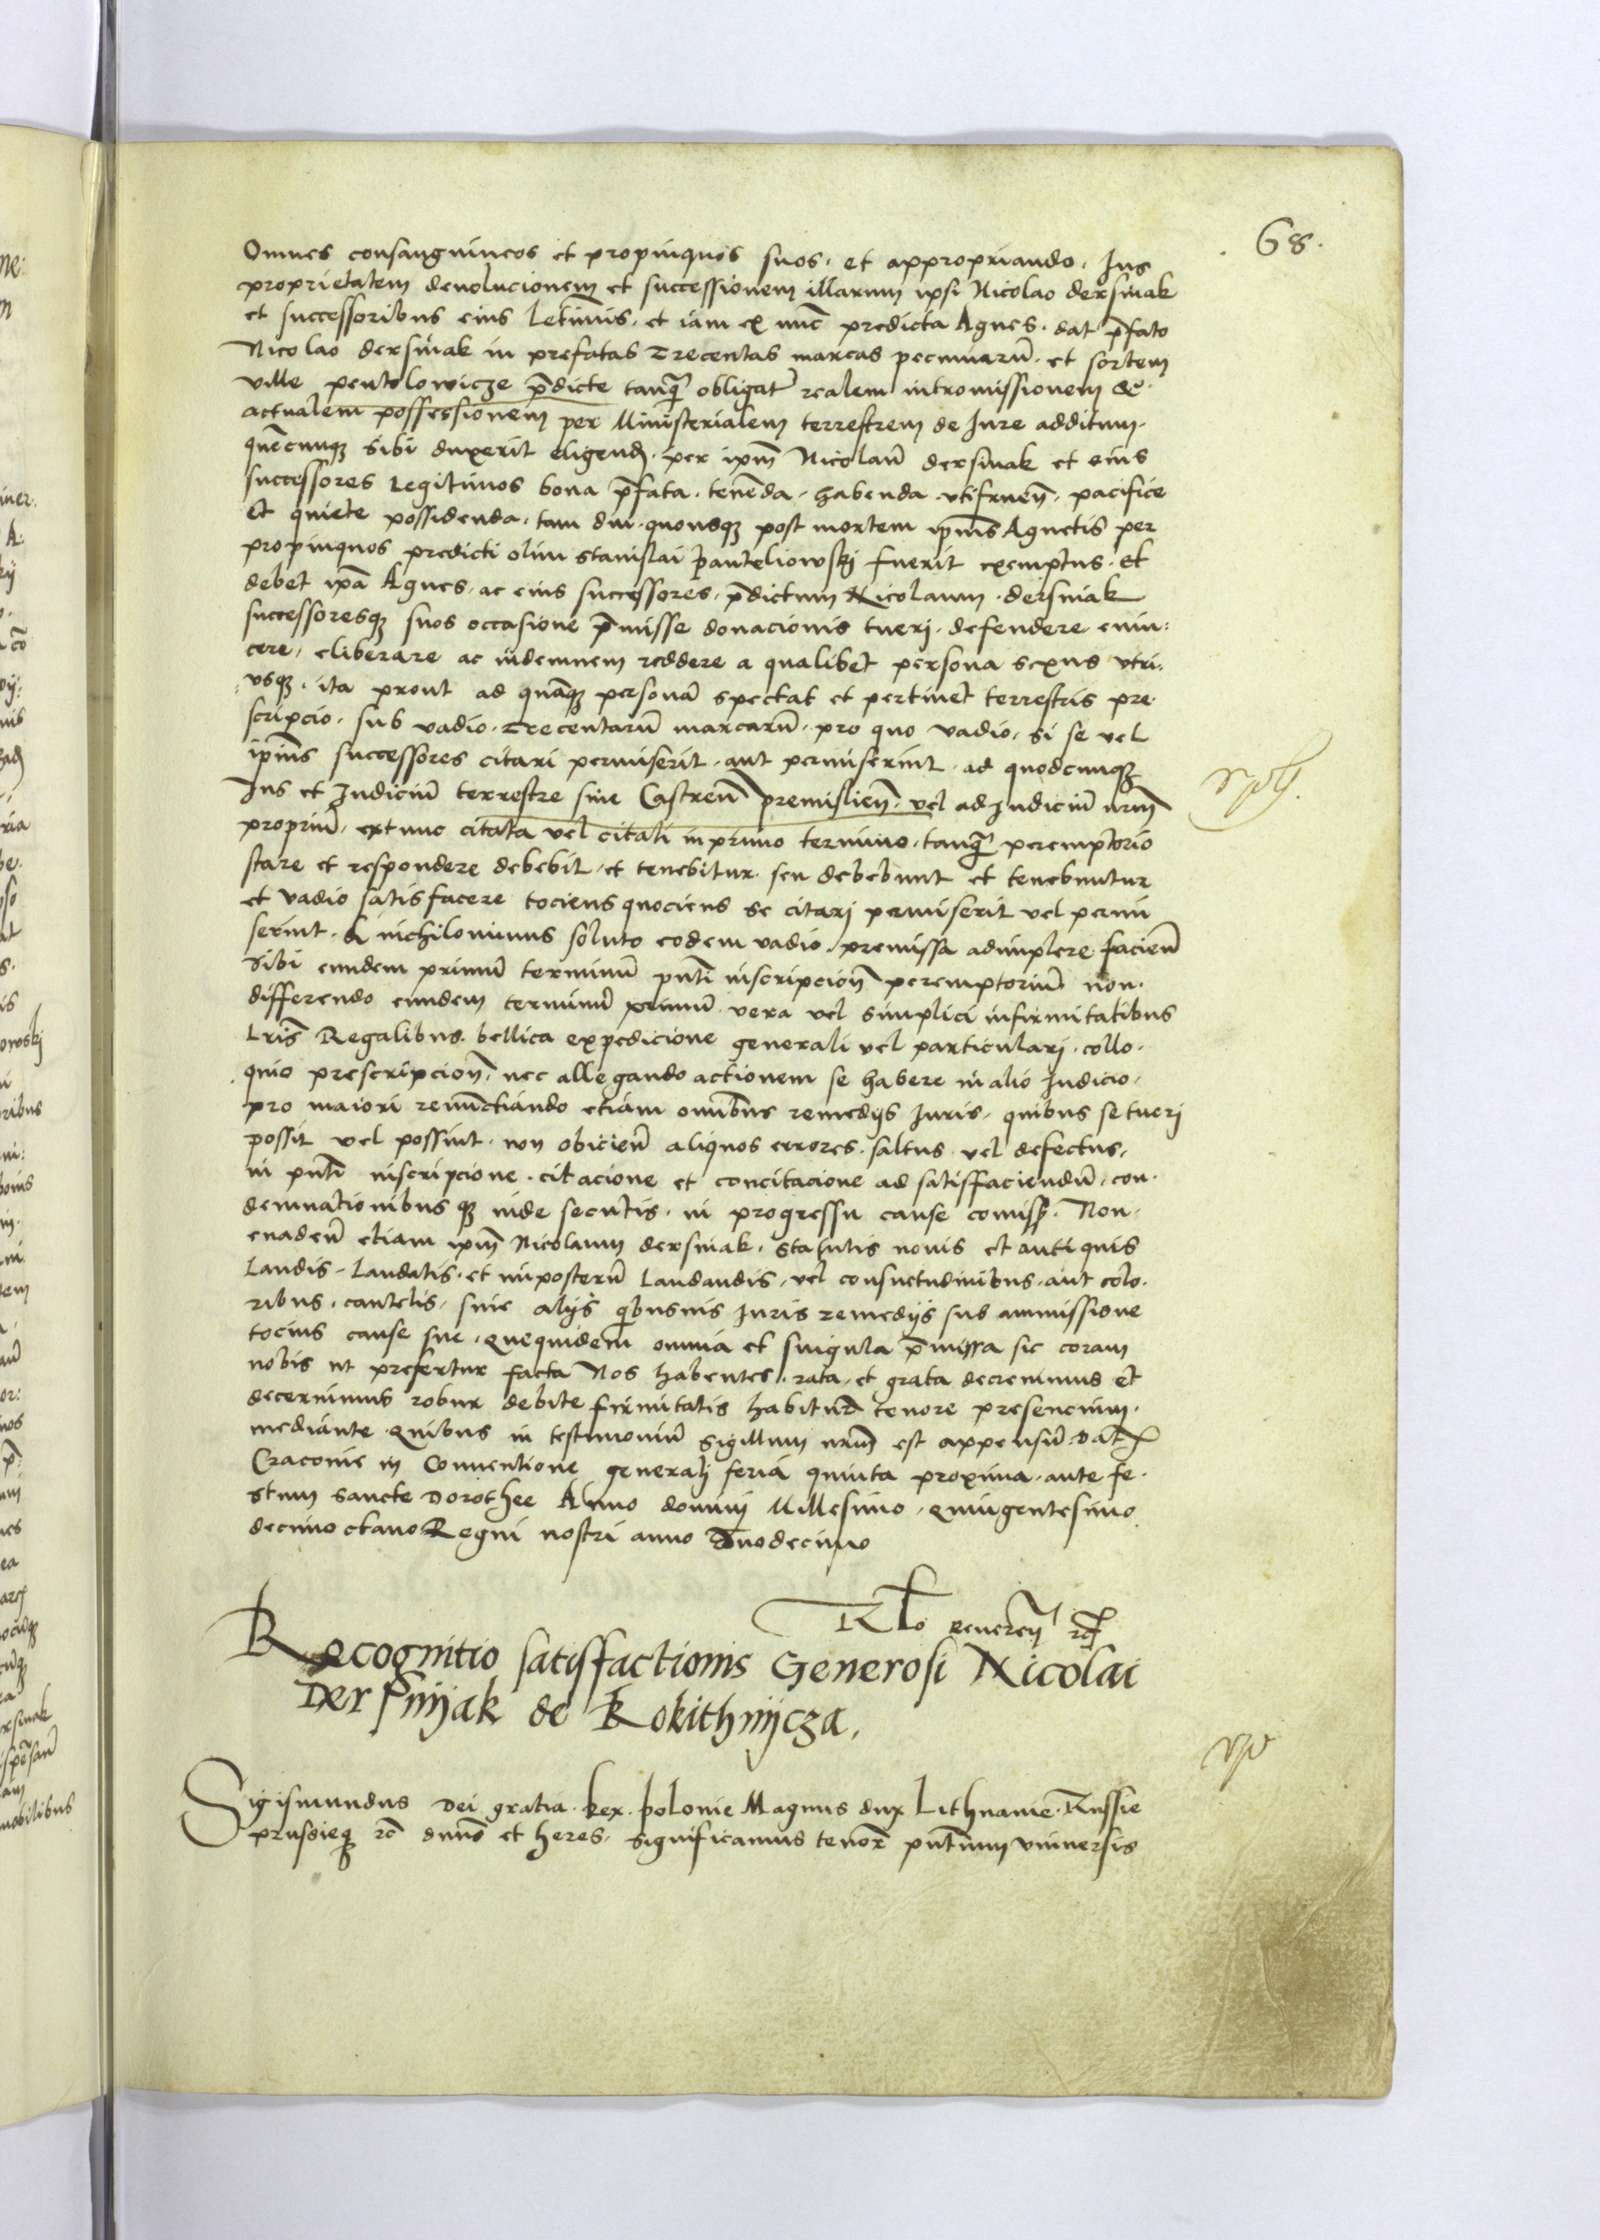 68.
Omnes consanguineos et propinquos suos, et appropriando, Ius
proprietatem devolucionem et successionem illarum ipsi Nicolao dersniak
et successoribus eius letimis, et iam ex nunc predicta Agnes. dat p̄fato
Nicolao dersniak in prefatas Trecentas marcas pecuniarū. et sortem
ville pentolowicze p̄dicte tanq̄ obligat realem intromissionem &
actualem possessionem per Ministerialem terrestrem de Iure additum.
quēcunq3 sibi duxerit eligend. per ipm̄ Nicolaū dersniak et eius
successores legitimos bona p̄fata. tenēda. habenda utifruen̄. pacifice
Et quiete possidenda. tam diu. quousq3 post mortem ipius Agnetis per
propinquos predicti olim stanislai panteliowskj fuerit exemptus. Et
debet ipā Agnes. ac eius successores. p̄dictum Nicolaum. dersniak
successoresq3 suos occasione p̄misse donacionis tueri. defendere evin:
cere, eliberare ac indemnem reddere a qualibet persona sexus utri:
:usq3. ita prout ad quāq3 personā spectat et pertinet terrestris pre.
scripcio. sub vadio. Trecentarū marcarū. pro quo vadio. si se vel
ipius successores citari permiserit. aut permiserint. ad quodcunq3
Ius et Iudiciū terrestre sive Castren̄ premislien̄. vel ad Iudiciū nrm̄
propriū. extunc citata vel citati in primo termino. tanq̄ peremptorio
stare et respondere debebit. et tenebitur. seu debebunt et tenebuntur
et vadio satisfacere tociens quociens se citarj permiserit vel permi
serint. & nichilominus soluto eodem vadio. premissa adimplere facien̄
Sibi eundem primū terminū pn̄ti inscripcion̄ peremptoriū non.
differendo eundem terminū primū. vera vel simplici infirmitatibus
Lris̄ Regalibus. bellica expedicione generali vel particularj. collo.
quio prescripcion̄. nec allegando actionem se habere in alio Iudicio.
pro maiori renūctiando etiam omībus remedijs Iuris. quibus se tuerj
possit vel possint. non obicien̄ aliquos errores. saltus vel defectus.
in pn̄ti inscripcione. citacione et concitacione ad satisfaciendū. con.
demnationibus q3 inde secutis. in progressu cause comiss. Non.
evaden̄ etiam ipm̄ Nicolaum dersniak. statutis novis et antiquis
Laudis. Laudatis. et inposterū laudandis. vel consuetudinibus. aut colo.
ribus. cautelis. sive alijs qibusvis Iuris remedijs sub ammissione
tocius cause sue. quequidem omnia et singula p̄missa sic coram
nobis ut prefertur facta Nos habentes. rata. et grata decrevimus et
decernimus robur debite firmitatis habitura tenore presencium.
mediante. quibus in testimoniū sigillum nrūm est appensū. Dat
Cracovie in Conventione generalj feria quinta proxima. ante fe.
stum sancte Dorothee Anno dominj Millesimo. quingentesimo
decimo octavo Regni nostri anno Duodecimo
Rlo reveren̄
Recognitio satisfactionis Generosi Nicolai
Dersnijak de Rokithnijcza.
Sigismundus Dei gratia. Rex. polonie Magnus dux Lithuanie. Russie
prussieq3 rc̄ dnus et heres. significamus tenor̄ pn̄tium universis